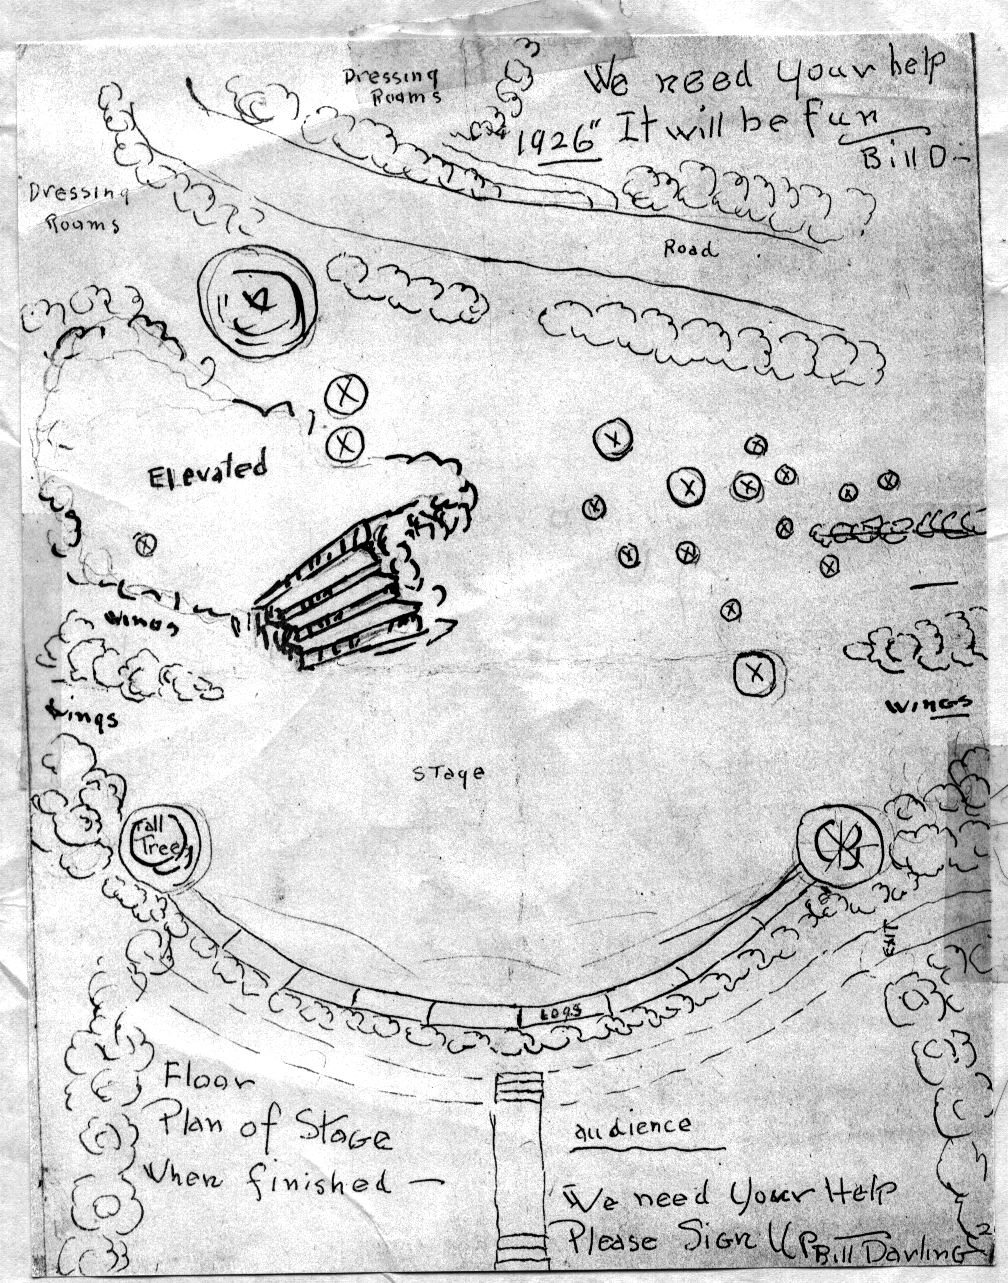 Dressing
Rooms
We need your help
1926" It will be fun
Bill D-
Dressing
Rooms
Road
Elevated
Wings
Wings
Wings
Stage
Tall
Tree
EXIT
Logs
Floor
Plan of Stage
When finished —
audience
We need your Help
Please Sign Up
Bill Darling